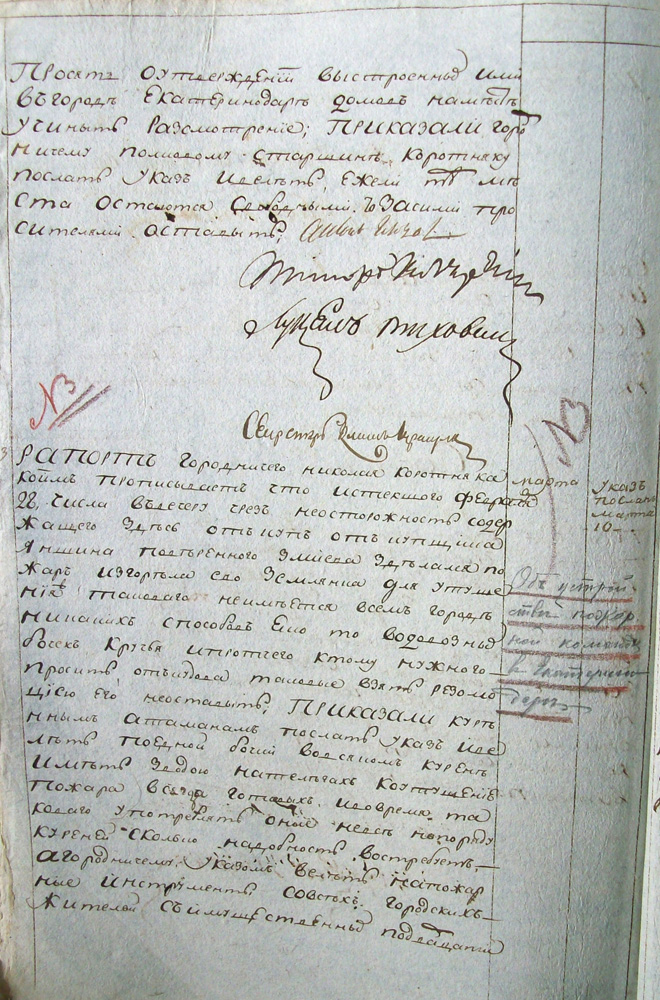 Просятъ оутверждении выстроенныхъ ими
въгородѣ Екатеринодарѣ домовъ намѣстъ
учинить Разсмотреніе; Приказали горо
ничему полковому старшинѣ Коротняку
послать Указъ ивелѣть, Ежели тѣ мѣ
ста остаются свободными, то Засими про
сителями оставить;
Секретарь
№3
№3
РАПОРТЪ городничего николая коротняка
коимъ прописываетъ что истекшого февраля
28, числа въвечеру чрезъ неосторожность содер
жащего здѣсь откупъ отъ купщика
Яншина поверенного Змиева Зделался по
жаръ изгорѣла ево Землянка для утуше
нія таковаго неимѣется всемъ городѣ
никакихъ способовъ Ето то водовозныхъ
бочекъ крючья ипротчего ктому нужного
проситъ, откудова таковые взять резолю
цією его неоставить; Приказали курѣ
ннымъ атаманамъ послать указъ иве
лѣть поедной бочки водвякомъ куренѣ
имѣть Зводою нателѣгахъ коутушенію
пожара всегда готовыхъ, ивовремя та
коваго употреблять оніе
куреней сколько надобность востребуетъ,
агородничему, указомъ велѣть напожар
ные инструменты совсѣхъ городскихъ
жителей съимущественныхъ
марта
Указъ
посланъ
марта
10
Объ устрой-
ствѣ пожар
ной команды
в Екатерино
дарѣ